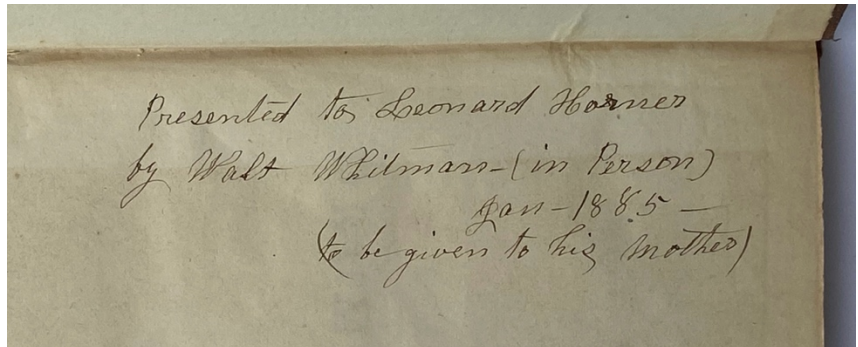 Presented to Leonard Horner
by Walt Whitman - (in Person)
Jan - 1885 -
(to be given to his mother)